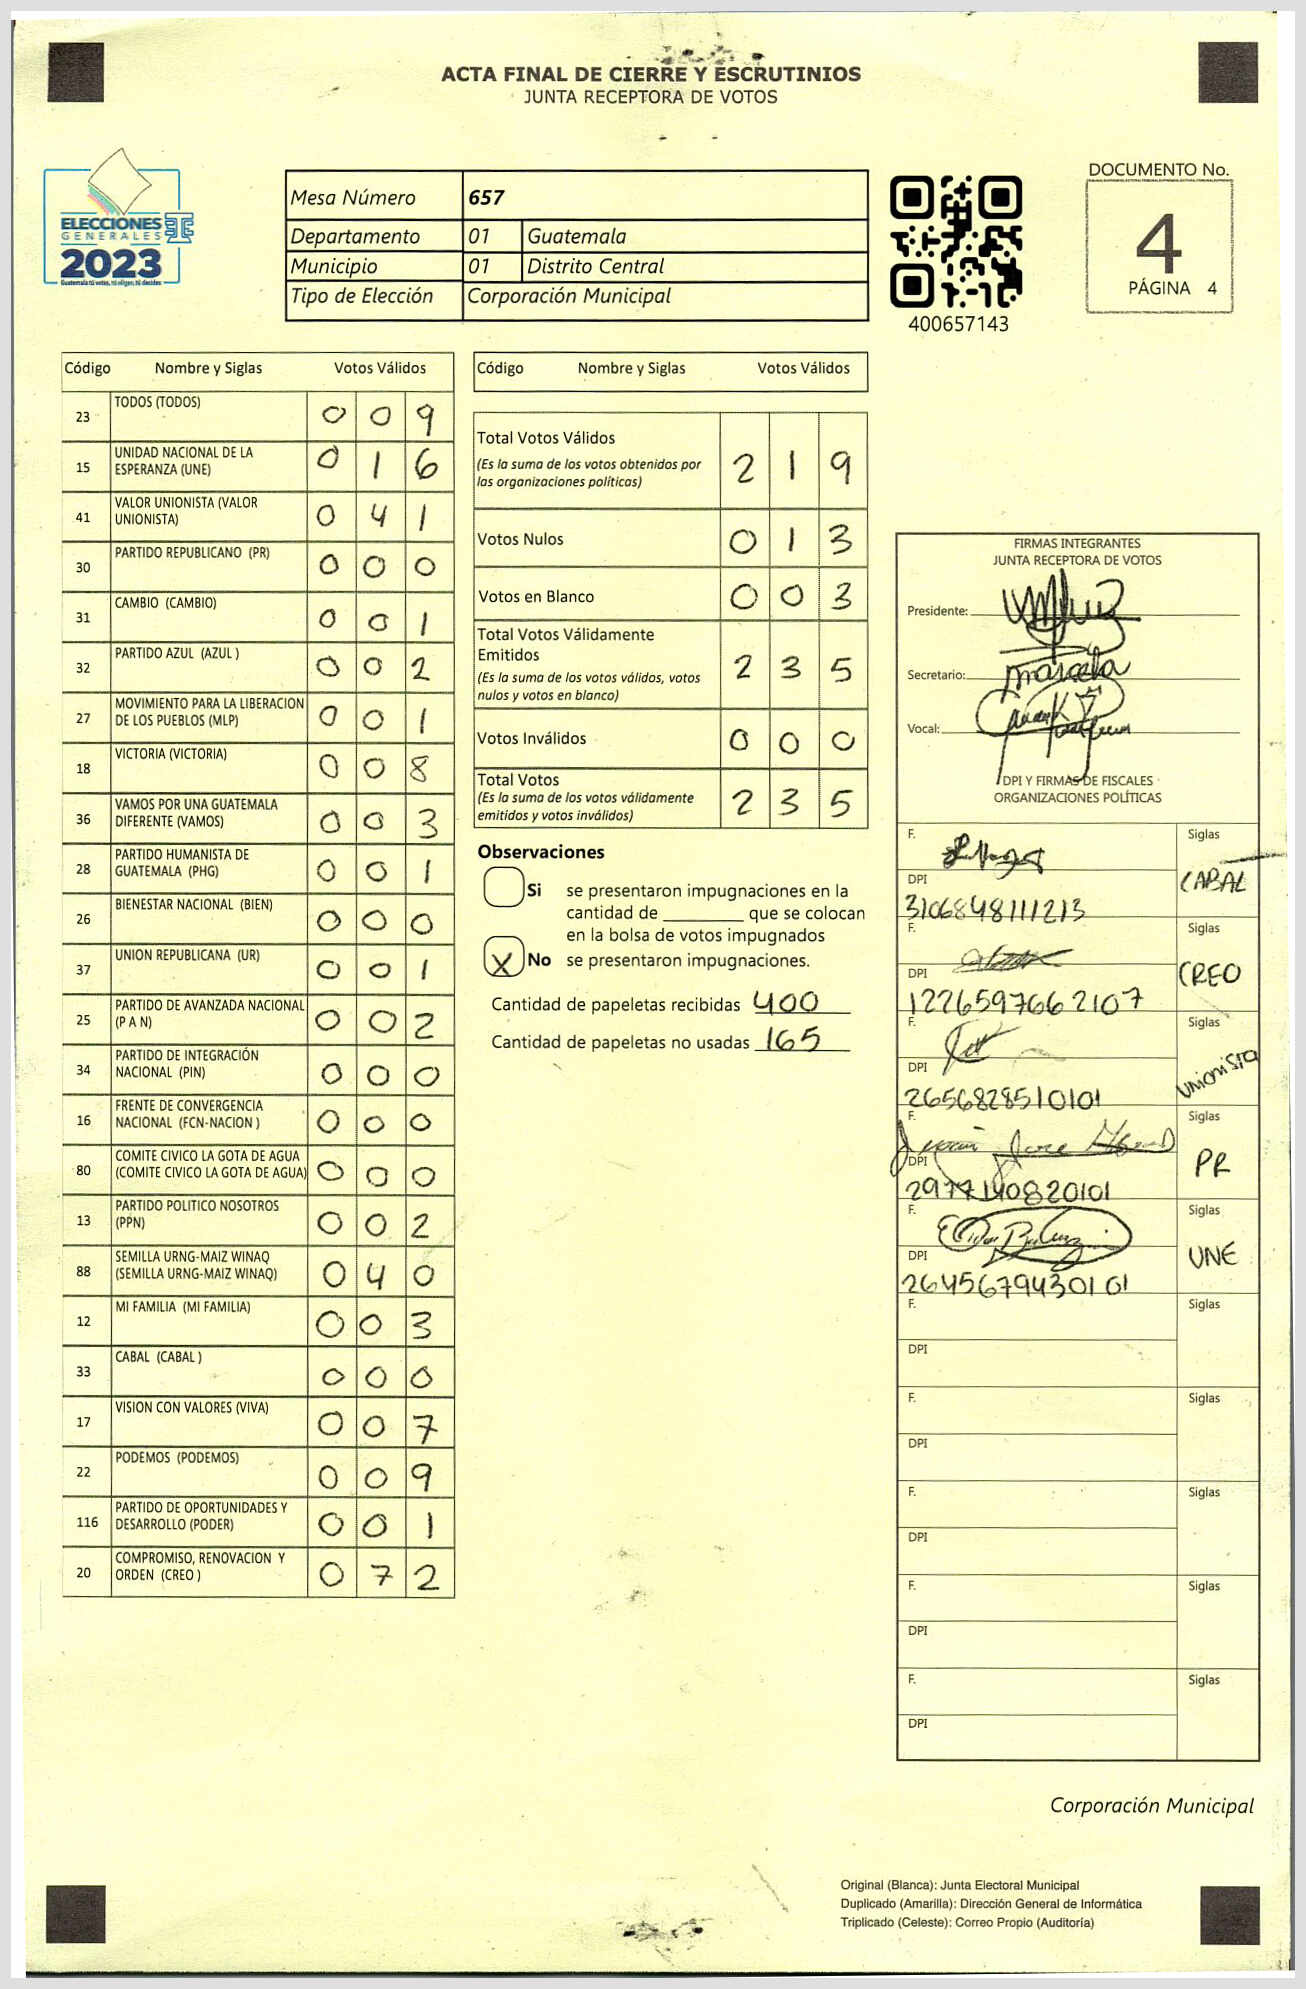 ACTA FINAL DE CIERRE Y ESCRUTINIOS
JUNTA RECEPTORA DE VOTOS
ELECCIONES
GENERALES
2023
Guatemala tú votas, tú eliges, tú decides
Mesa Número 657
Departamento 01 Guatemala
Municipio 01 Distrito Central
Tipo de Elección Corporación Municipal
400657143
DOCUMENTO No.
4
PÁGINA 4
Código Nombre y Siglas Votos Válidos
23 TODOS (TODOS) 0 0 9
15 UNIDAD NACIONAL DE LA ESPERANZA (UNE) 0 1 6
41 VALOR UNIONISTA (VALOR UNIONISTA) 0 4 1
30 PARTIDO REPUBLICANO (PR) 0 0 0
31 CAMBIO (CAMBIO) 0 0 1
32 PARTIDO AZUL (AZUL ) 0 0 2
27 MOVIMIENTO PARA LA LIBERACION DE LOS PUEBLOS (MLP) 0 0 1
18 VICTORIA (VICTORIA) 0 0 8
36 VAMOS POR UNA GUATEMALA DIFERENTE (VAMOS) 0 0 3
28 PARTIDO HUMANISTA DE GUATEMALA (PHG) 0 0 1
26 BIENESTAR NACIONAL (BIEN) 0 0 0
37 UNION REPUBLICANA (UR) 0 0 1
25 PARTIDO DE AVANZADA NACIONAL (P A N) 0 0 2
34 PARTIDO DE INTEGRACIÓN NACIONAL (PIN) 0 0 0
16 FRENTE DE CONVERGENCIA NACIONAL (FCN-NACION ) 0 0 0
80 COMITE CIVICO LA GOTA DE AGUA (COMITE CIVICO LA GOTA DE AGUA) 0 0 0
13 PARTIDO POLITICO NOSOTROS (PPN) 0 0 2
88 SEMILLA URNG-MAIZ WINAQ (SEMILLA URNG-MAIZ WINAQ) 0 4 0
12 MI FAMILIA (MI FAMILIA) 0 0 3
33 CABAL (CABAL ) 0 0 0
17 VISION CON VALORES (VIVA) 0 0 7
22 PODEMOS (PODEMOS) 0 0 9
116 PARTIDO DE OPORTUNIDADES Y DESARROLLO (PODER) 0 0 1
20 COMPROMISO, RENOVACION Y ORDEN (CREO ) 0 7 2
Código Nombre y Siglas Votos Válidos
Total Votos Válidos 2 1 9
(Es la suma de los votos obtenidos por
las organizaciones políticas)
Votos Nulos 0 1 3
Votos en Blanco 0 0 3
Total Votos Válidamente
Emitidos 2 3 5
(Es la suma de los votos válidos, votos
nulos y votos en blanco)
Votos Inválidos 0 0 0
Total Votos 2 3 5
(Es la suma de los votos válidamente
emitidos y votos inválidos)
Observaciones
Si se presentaron impugnaciones en la
cantidad de ________ que se colocan
en la bolsa de votos impugnados
X No se presentaron impugnaciones.
Cantidad de papeletas recibidas 400
Cantidad de papeletas no usadas 165
FIRMAS INTEGRANTES
JUNTA RECEPTORA DE VOTOS
Presidente:
Secretario: Marcela
Vocal:
DPI Y FIRMAS DE FISCALES
ORGANIZACIONES POLÍTICAS
F. Siglas
DPI CABAL
3106848111213
F. Siglas
DPI CREO
1226597662107
F. Siglas
DPI Unionista
2656828510101
F. Siglas
DPI PR
2977140820101
F. Siglas
DPI UNE
2645679430101
F. Siglas
DPI
F. Siglas
DPI
F. Siglas
DPI
F. Siglas
DPI
F. Siglas
DPI
Corporación Municipal
Original (Blanca): Junta Electoral Municipal
Duplicado (Amarilla): Dirección General de Informática
Triplicado (Celeste): Correo Propio (Auditoría)